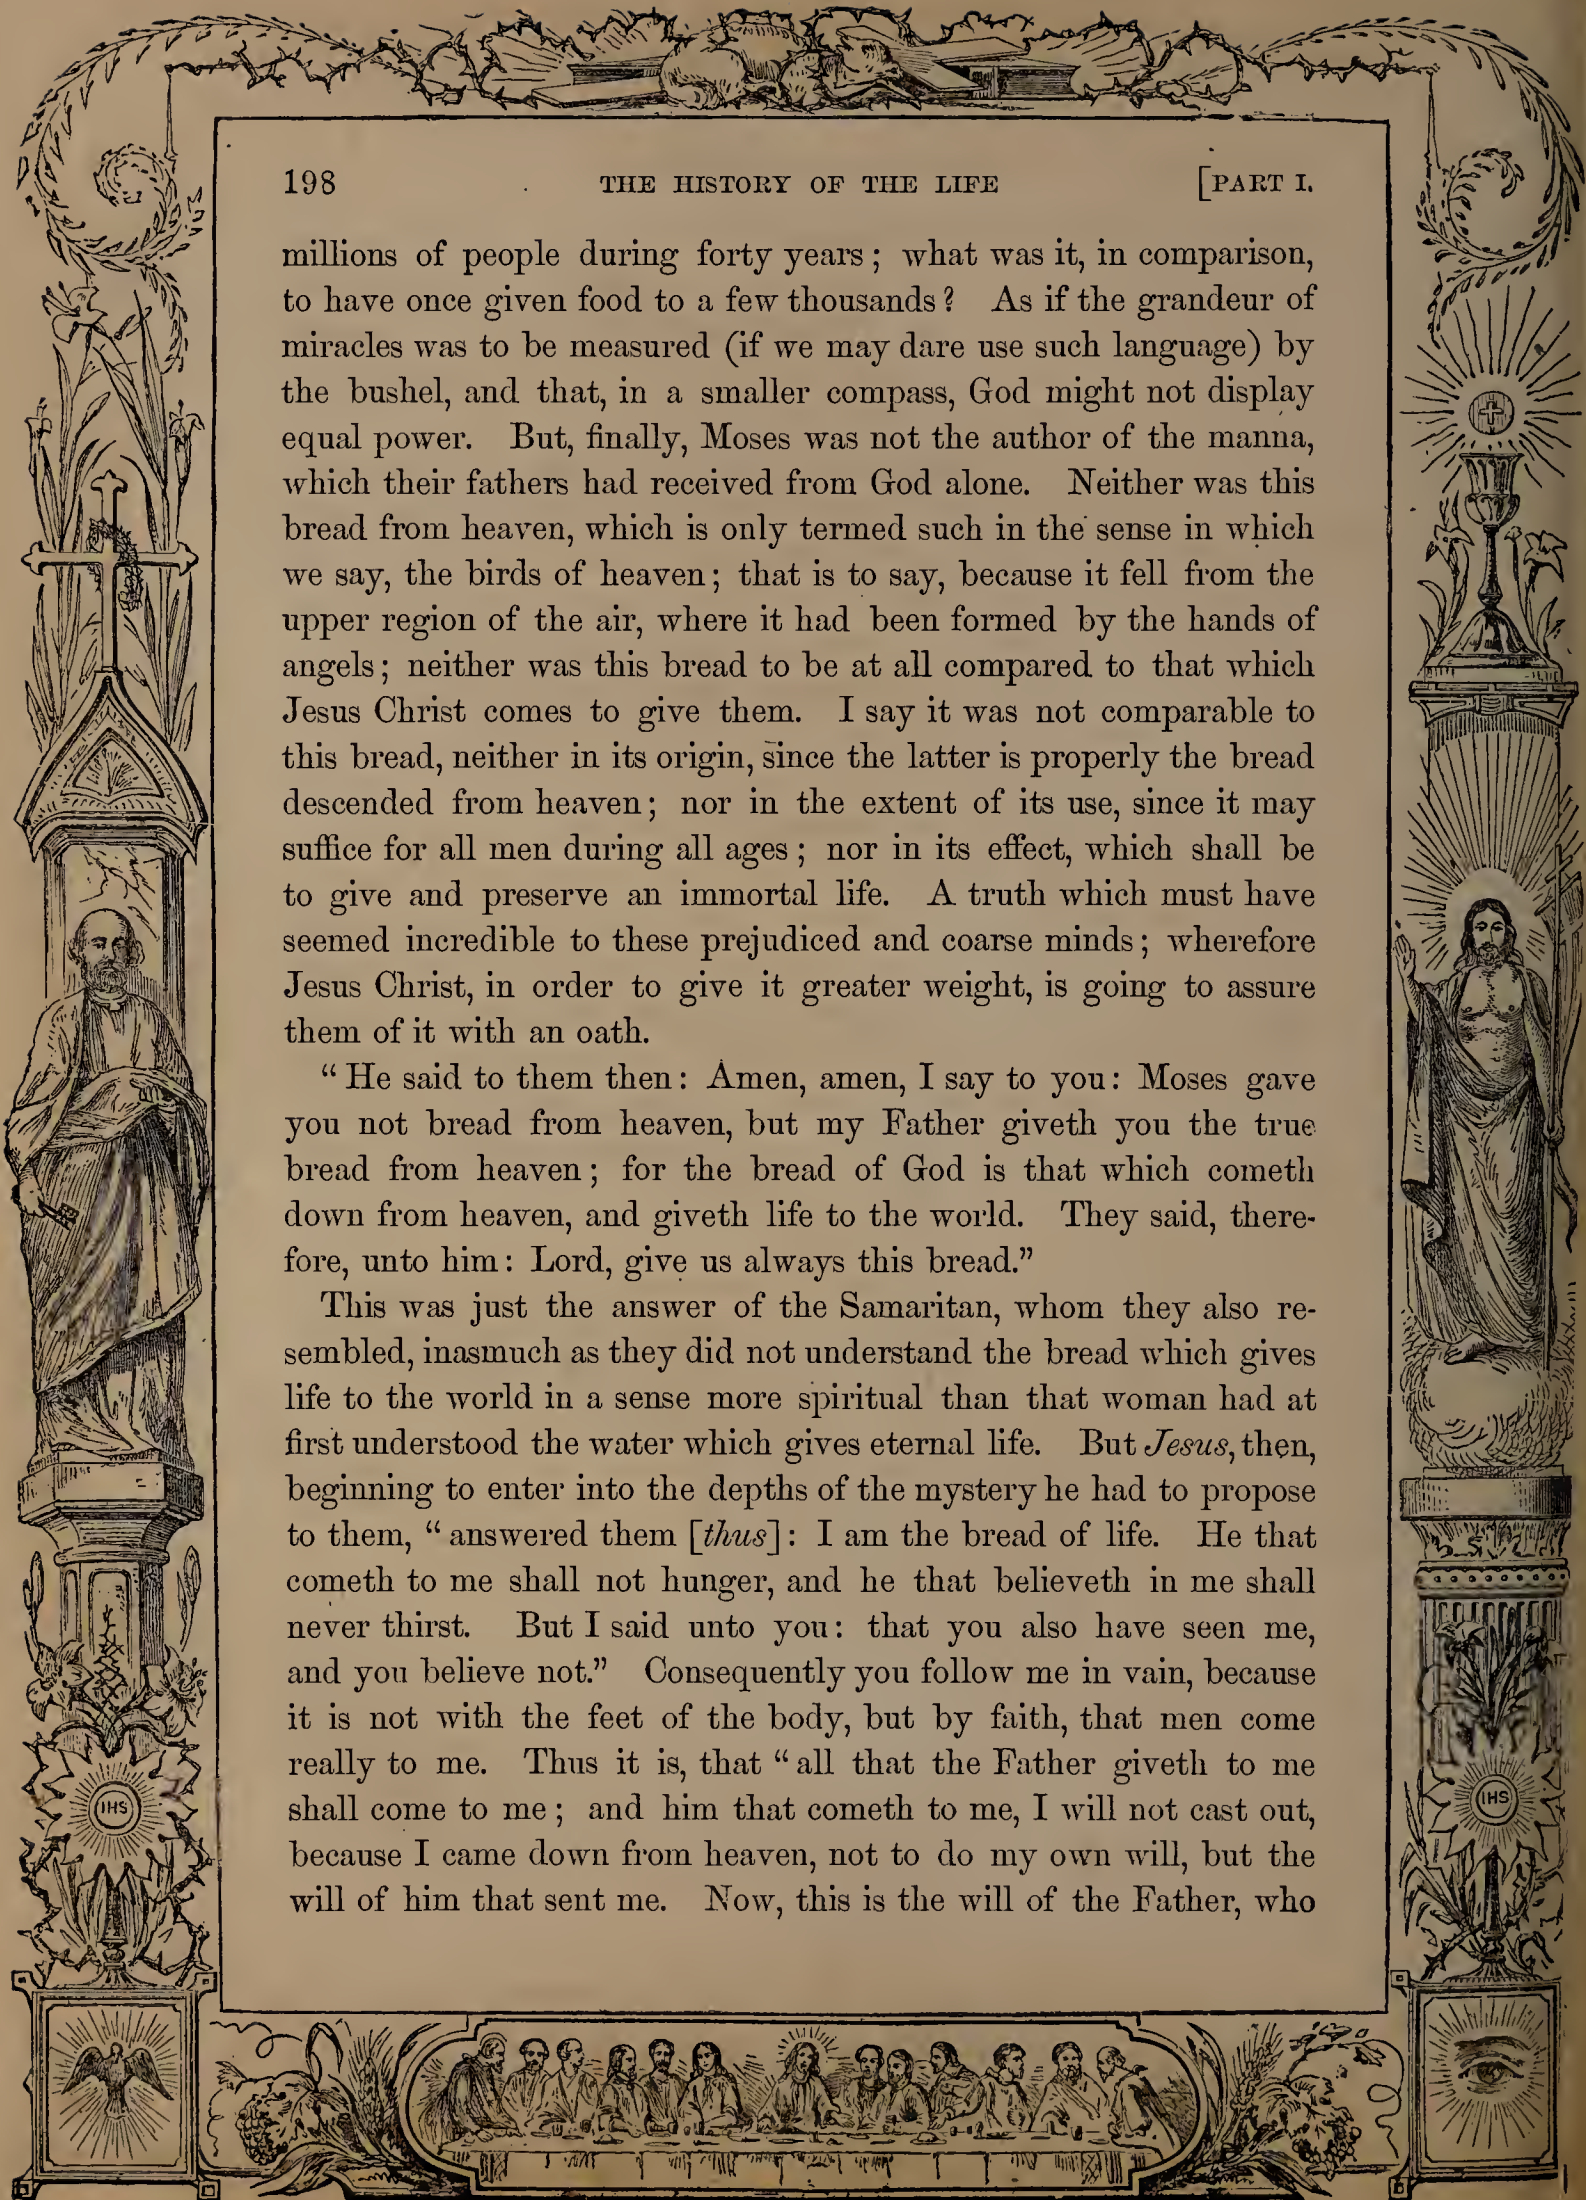 198 THE HISTORY OF THE LIFE [PART I.
millions of people during forty years ; what was it, in comparison,
to have once given food to a few thousands ? As if the grandeur of
miracles was to be measured (if we may dare use such language) by
the bushel, and that, in a smaller compass, God might not display
equal power. But, finally, Moses was not the author of the manna,
which their fathers had received from God alone. Neither was this
bread from heaven, which is only termed such in the sense in which
we say, the birds of heaven ; that is to say, because it fell from the
upper region of the air, where it had been formed by the hands of
angels ; neither was this bread to be at all compared to that which
Jesus Christ comes to give them. I say it was not comparable to
this bread, neither in its origin, since the latter is properly the bread
descended from heaven ; nor in the extent of its use, since it may
suffice for all men during all ages ; nor in its effect, which shall be
to give and preserve an immortal life. A truth which must have
seemed incredible to these prejudiced and coarse minds ; wherefore
Jesus Christ, in order to give it greater weight, is going to assure
them of it with an oath.
“ He said to them then : Amen, amen, I say to you : Moses gave
you not bread from heaven, but my Father giveth you the true
bread from heaven ; for the bread of God is that which cometh
down from heaven, and giveth life to the world. They said, there-
fore, unto him : Lord, give us always this bread.”
This was just the answer of the Samaritan, whom they also re-
sembled, inasmuch as they did not understand the bread which gives
life to the world in a sense more spiritual than that woman had at
first understood the water which gives eternal life. But Jesus, then,
beginning to enter into the depths of the mystery he had to propose
to them, “ answered them [thus] : I am the bread of life. He that
cometh to me shall not hunger, and he that believeth in me shall
never thirst. But I said unto you : that you also have seen me,
and you believe not.” Consequently you follow me in vain, because
it is not with the feet of the body, but by faith, that men come
really to me. Thus it is, that “ all that the Father giveth to me
shall come to me ; and him that cometh to me, I will not cast out,
because I came down from heaven, not to do my own will, but the
will of him that sent me. Now, this is the will of the Father, who
IHS
IHS